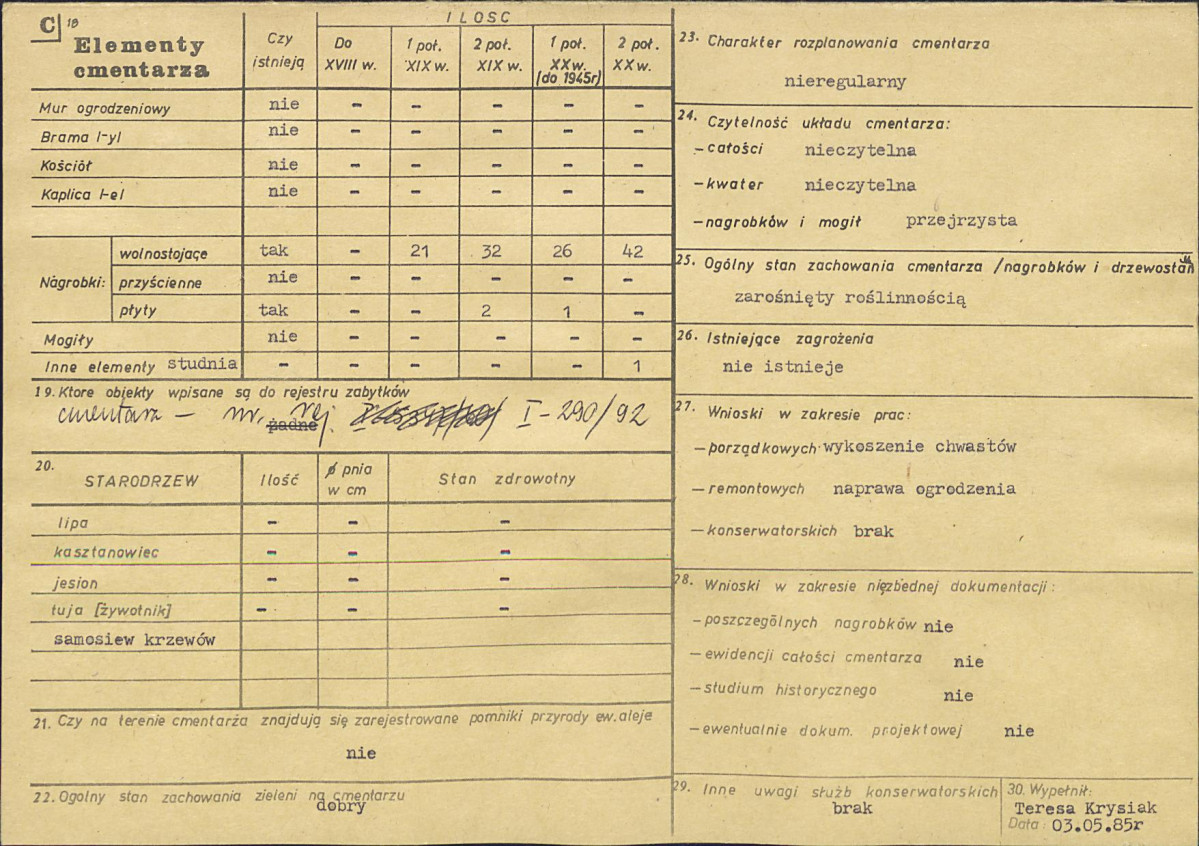 C 18
Elementy cmentarza
Czy istnieją
ILOSC
Do XVIII w.
1 poł. XIX w.
2 poł. XIX w.
1 poł. XX w. (do 1945r)
2 poł. XX w.
Mur ogrodzeniowy nie - - - - -
Brama l-yl nie - - - - -
Kościół nie - - - - -
Kaplica l-el nie - - - - -
Nagrobki:
wolnostojące tak - 21 32 26 42
przyścienne nie - - - - -
płyty tak - - 2 1 -
Mogiły nie - - - - -
Inne elementy studnia - - - - - 1
19. Ktore obiekty wpisane są do rejestru zabytków
cmentarz - nr. rej. I-290/92
żadne
20. STARODRZEW Ilość ϕ pnia w cm Stan zdrowotny
lipa - - -
kasztanowiec - - -
jesion - - -
tuja [żywotnik] - - -
samosiew krzewów
21. Czy na terenie cmentarza znajdują się zarejestrowane pomniki przyrody ew. aleje
nie
22. Ogolny stan zachowania zieleni na cmentarzu
dobry
23. Charakter rozplanowania cmentarza
nieregularny
24. Czytelność układu cmentarza:
- całości nieczytelna
- kwater nieczytelna
- nagrobków i mogił przejrzysta
25. Ogólny stan zachowania cmentarza /nagrobków i drzewostan
zarośnięty roślinnością
26. Istniejące zagrożenia
nie istnieje
27. Wnioski w zakresie prac:
- porządkowych wykoszenie chwastów
- remontowych naprawa ogrodzenia
- konserwatorskich brak
28. Wnioski w zakresie niezbędnej dokumentacji:
- poszczególnych nagrobków nie
- ewidencji całości cmentarza nie
- studium historycznego nie
- ewentualnie dokum. projektowej nie
29. Inne uwagi służb konserwatorskich
brak
30. Wypełnił:
Teresa Krysiak
Data: 03.05.85r